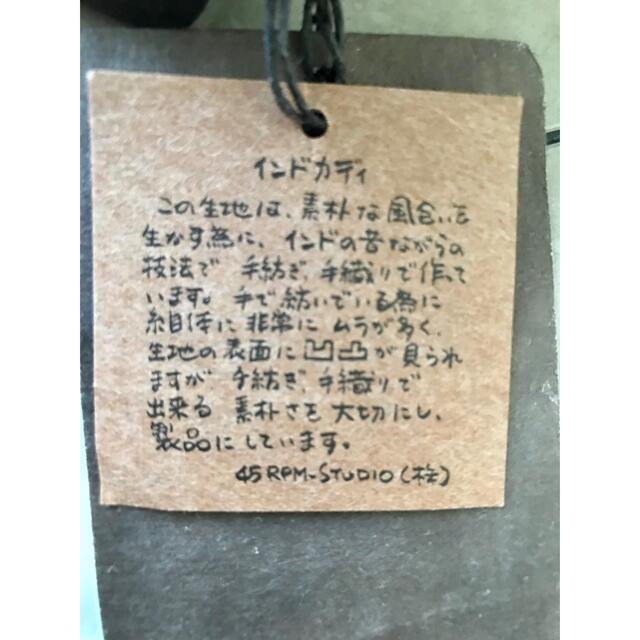 インドカディ
この生地は、素朴な風合いを
生かす為に、インドの昔ながらの
技法で 手紡ぎ、手織りで作って
います。手で紡いでいる為に
糸自体に非常に ムラが多く、
生地の表面に凹凸が見られ
ますが、手紡ぎ、手織りで
出来る 素朴さを大切にし、
製品にしています。
45RPM-STUDIO(株)